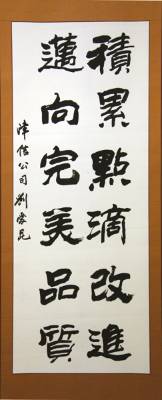 積累點滴改進
邁向完美品質
偉信公司劉家昆